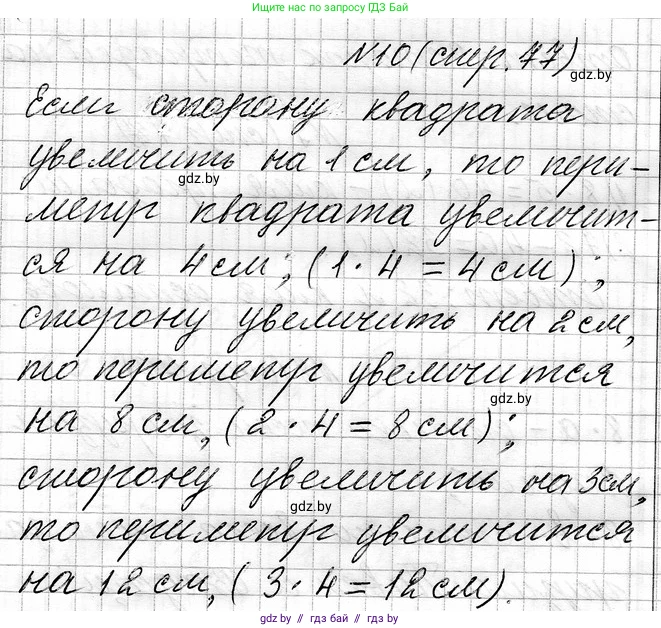 Ищите нас по запросу ГДЗ Бай
№10 (стр. 77)
gdz.by
Если сторону квадрата
увеличить на 1 см, то пери-
gdz.by
метр квадрата увеличит-
ся на 4 см; (1 · 4 = 4 см);
сторону увеличить на 2 см,
то периметр увеличится
gdz.by
на 8 см, (2 · 4 = 8 см);
сторону увеличить на 3 см,
gdz.by
то периметр увеличится
на 12 см, (3 · 4 = 12 см).
gdz.by // гдз бай // gdz.by